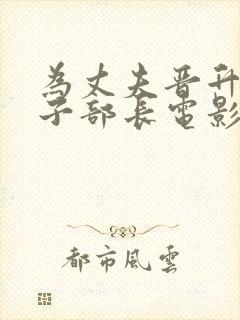 為丈夫晋升
子部長電影
都市風雲